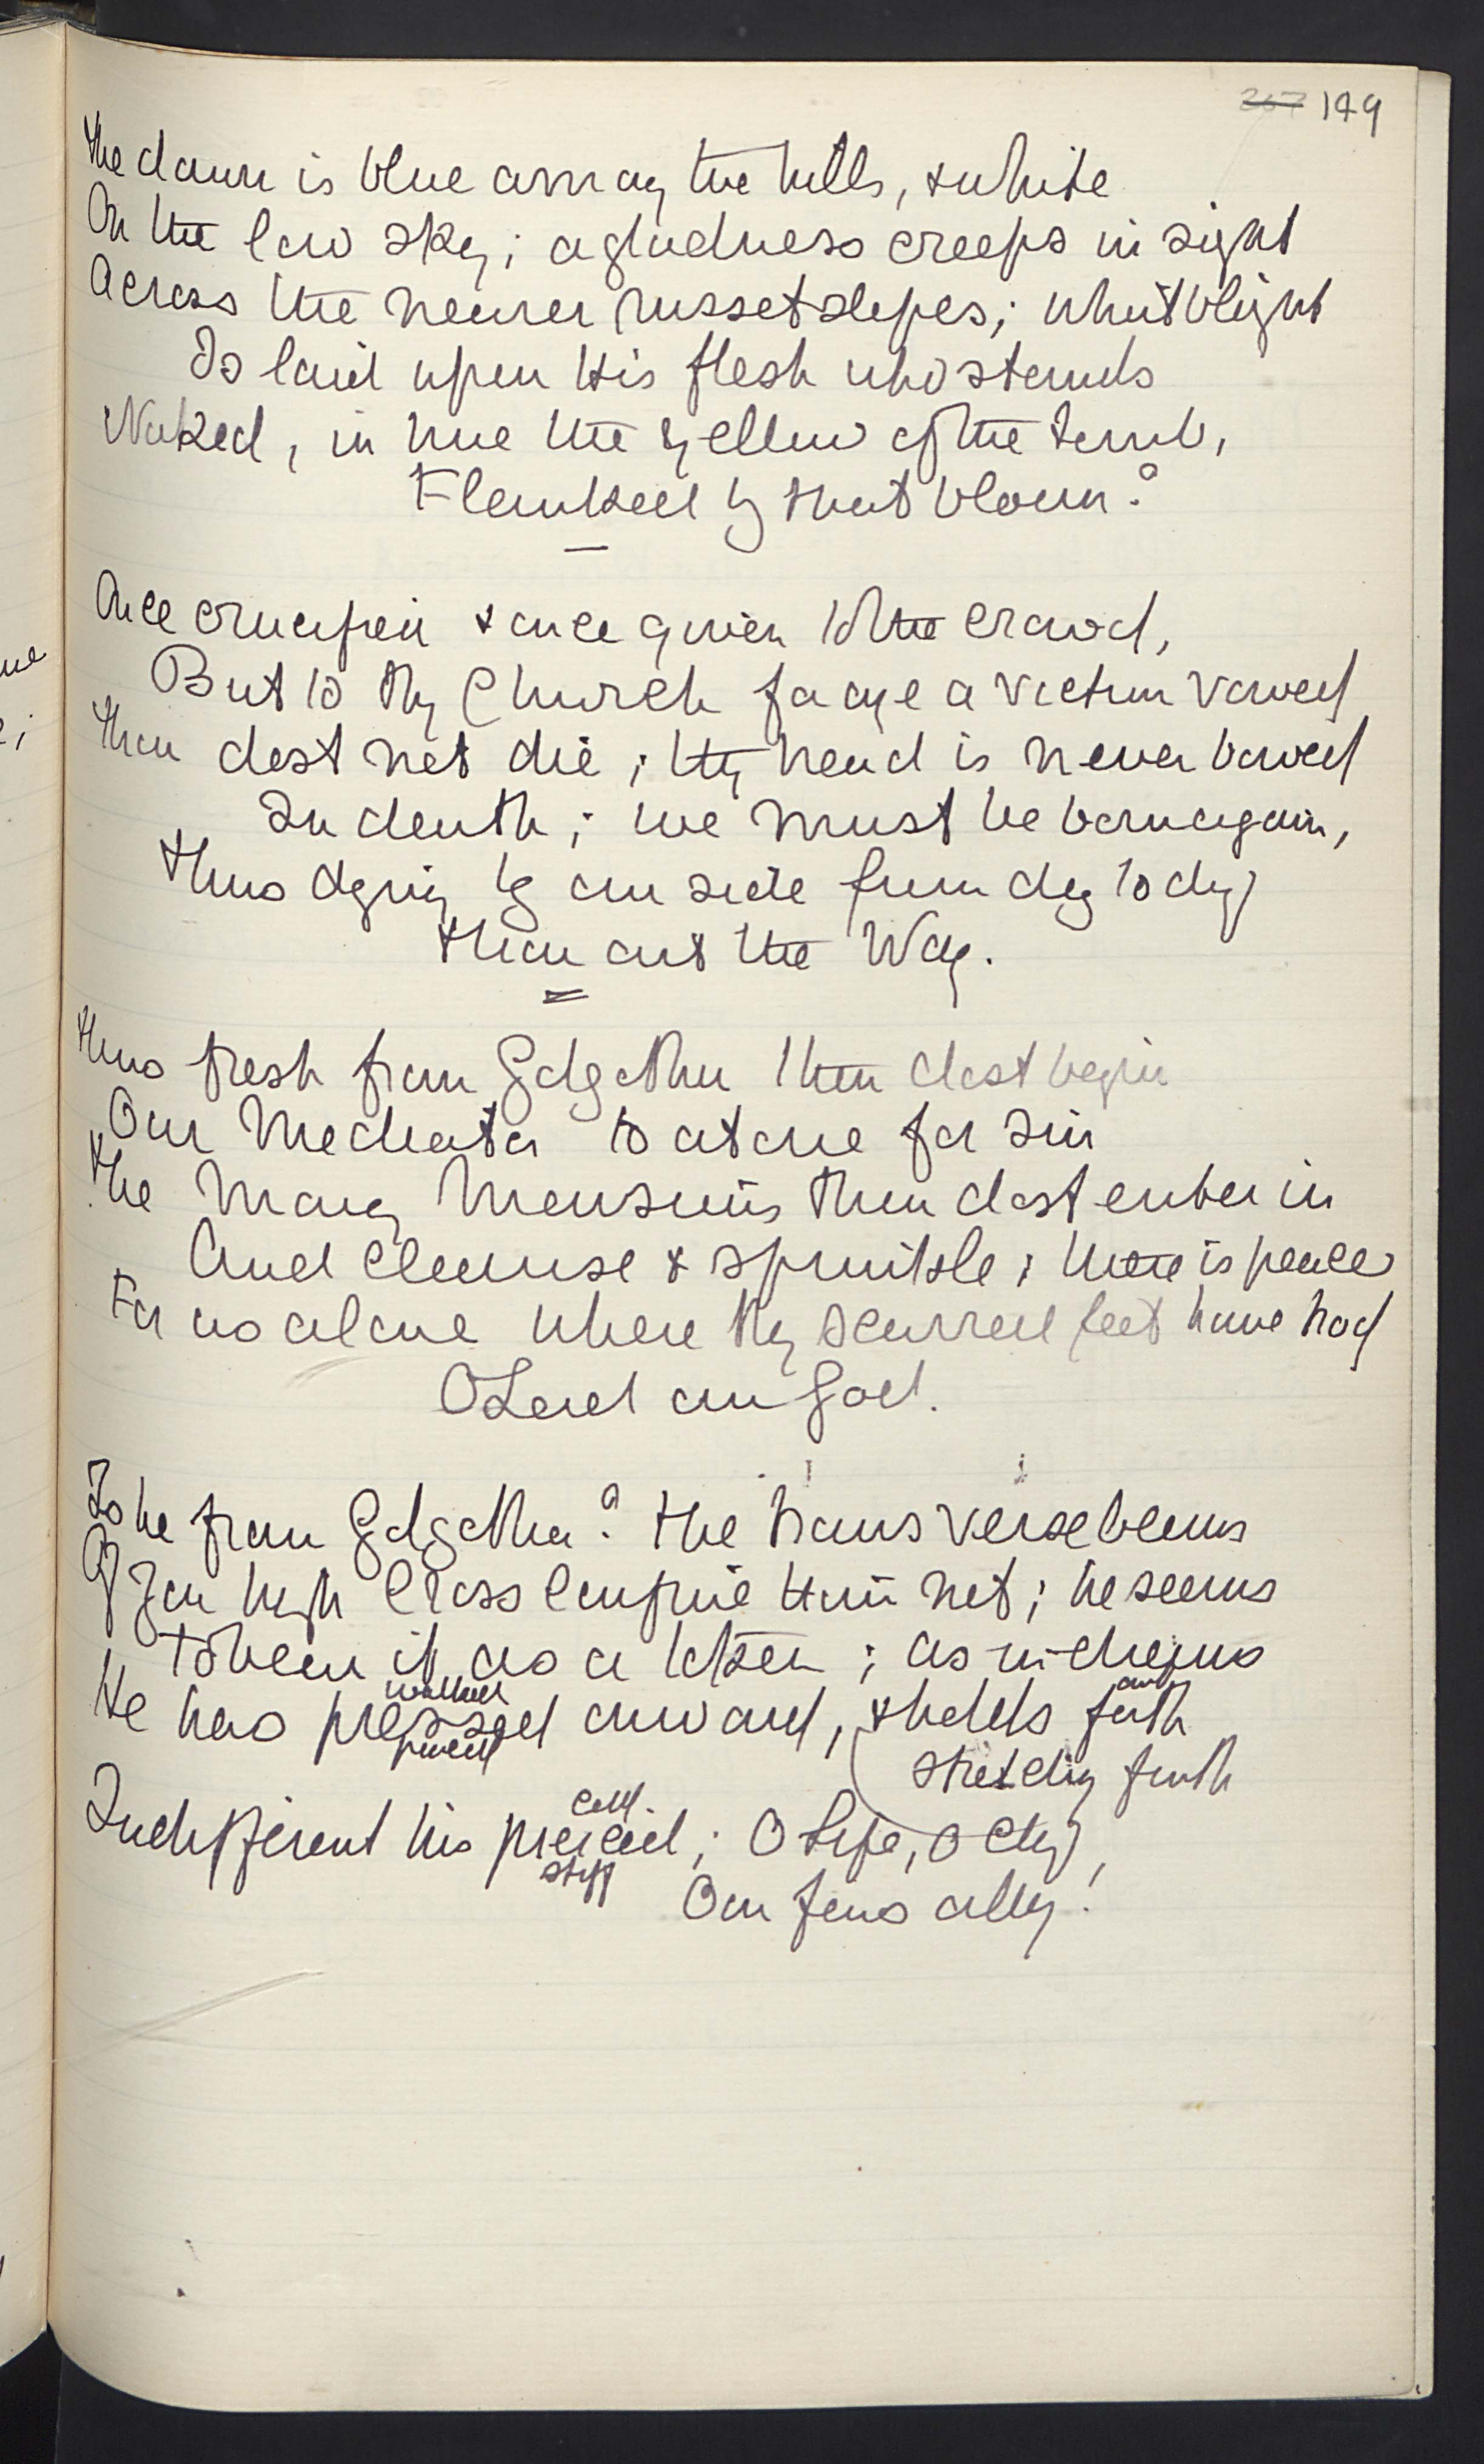 267 149
the dawn is blue among the hills, & white
On the low sky; a gladness creeps in sight
Across the nearer russet slopes; what blight
Is laid upon His flesh who stands
Naked, in hue the yellow of the tomb,
Flanked by that bloom?
Once crucified & once given to the crowd,
But to Thy Church for aye a victim vowed
thou dost not die; thy head is never bowed
In death; we must be born again,
thus dying by our side from day to day
thou art the Way.
thus fresh from Golgotha thou dost begin
Our Mediator to atone for sin
the Many Mansions thou dost enter in
And cleanse & sprinkle; there is peace
For us alone where thy scarred feet have trod
O Lord our God.
Is he from Golgotha? the transverse beams
Of yon high Cross confine Him not; he seems
To bear it as a token; as in dreams
walked
He has pressed onward, & holds forth
moved
stretching forth
cold
Indifferent his pierced; O Life, O Clay,
stiff
Our Jesus ally!